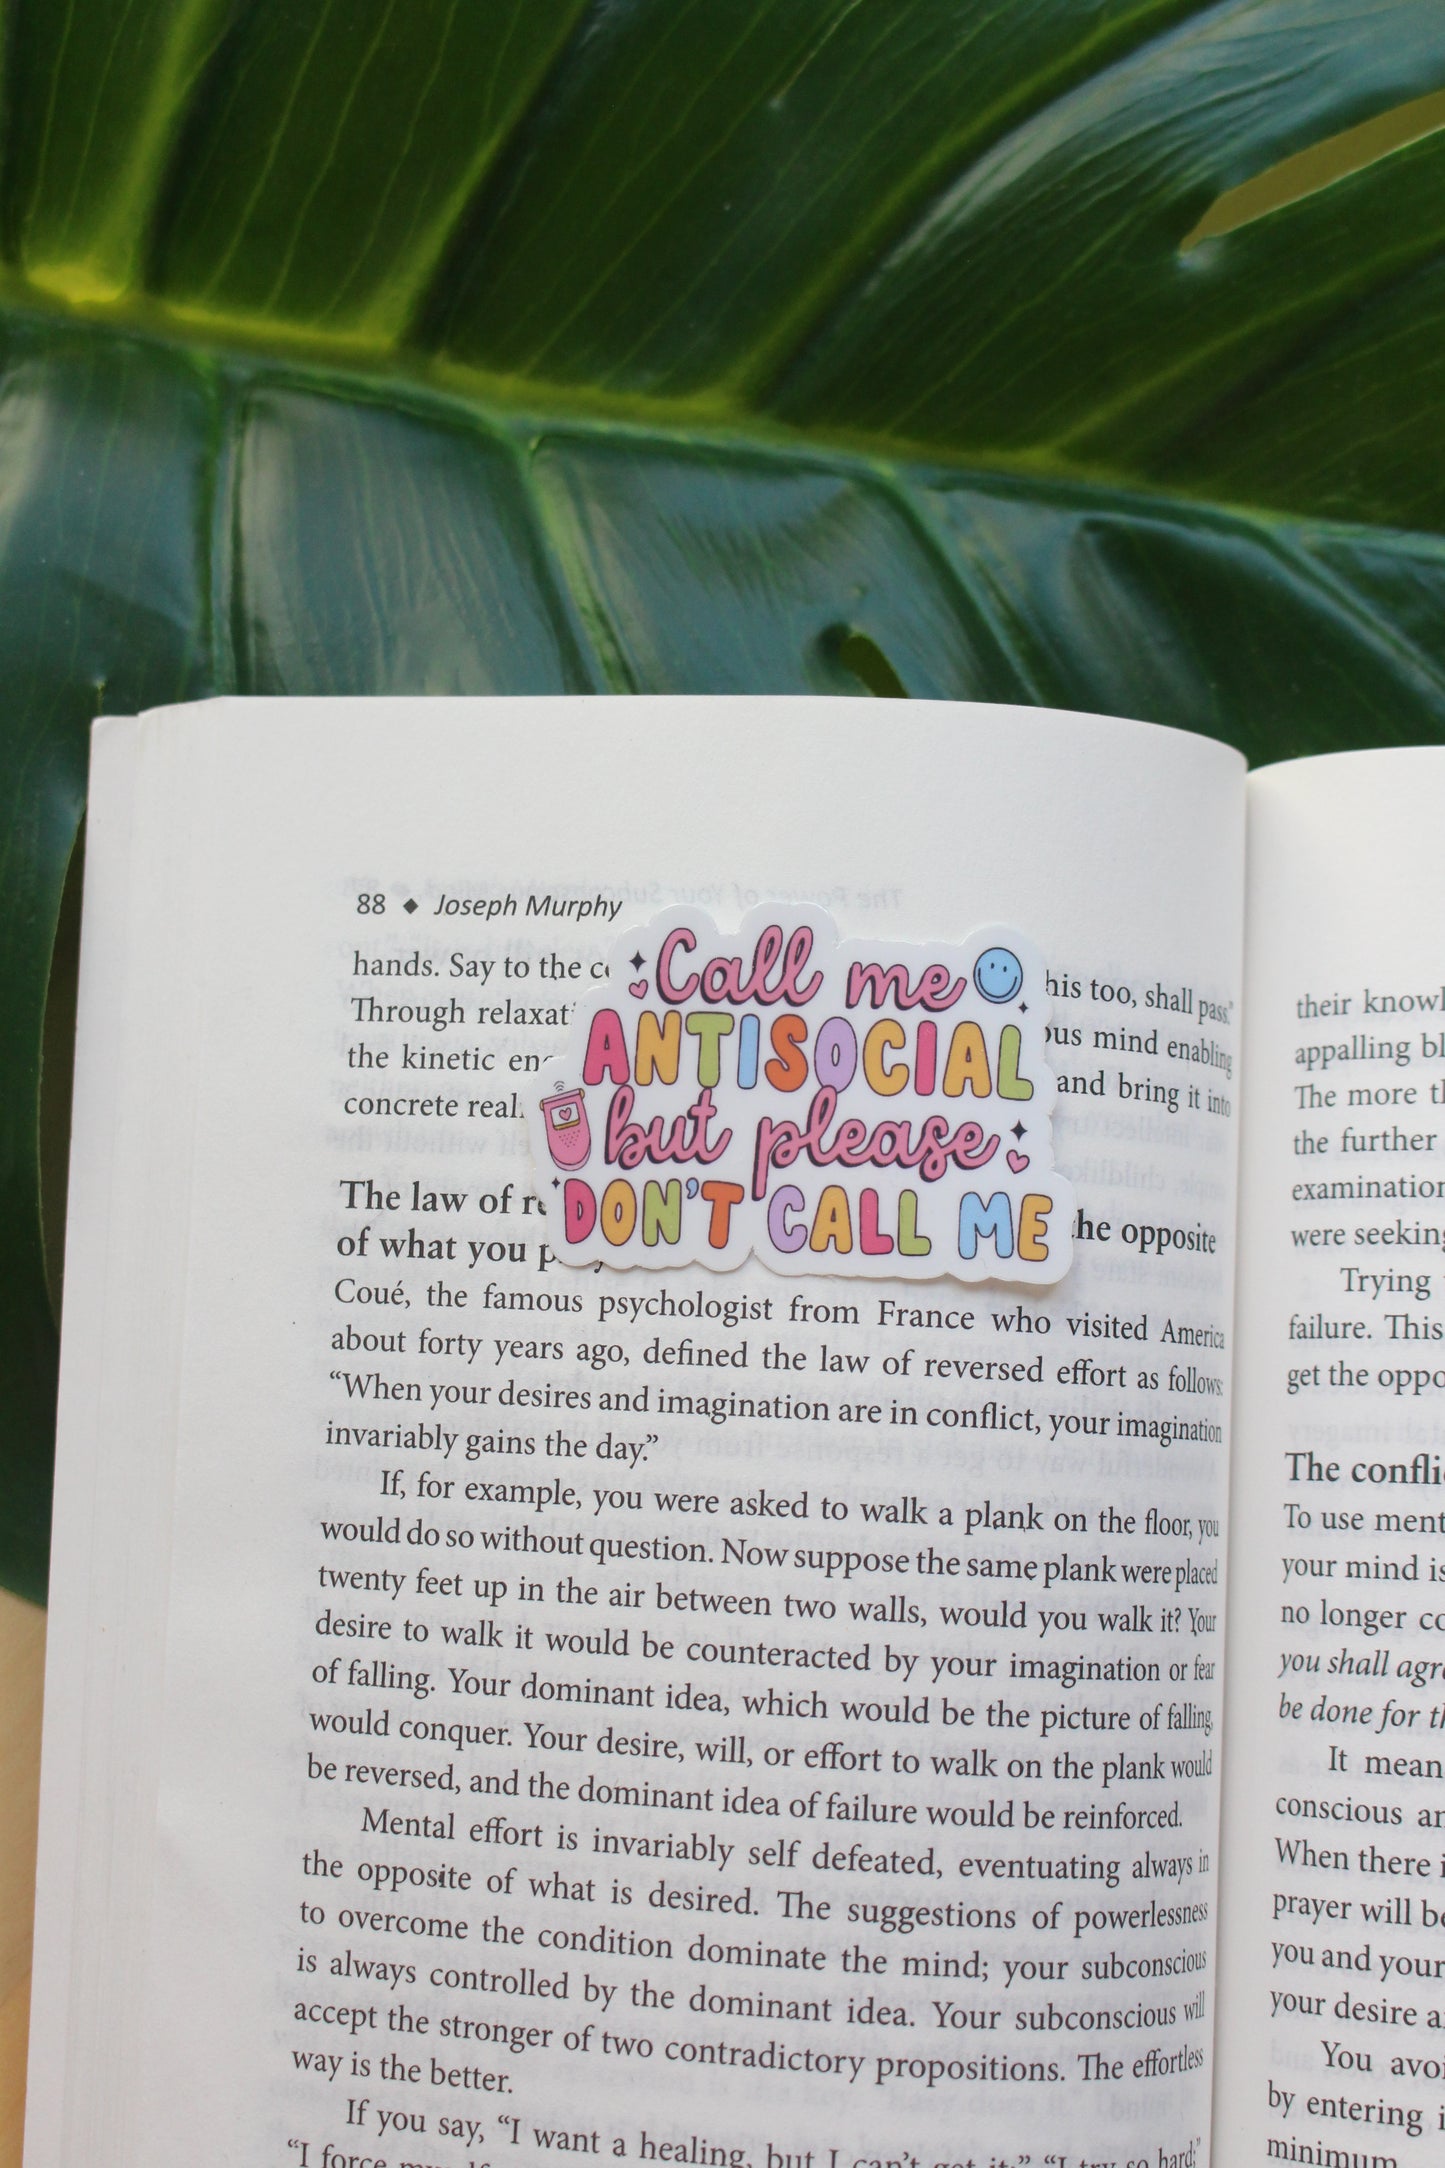 88 ◆ Joseph Murphy
hands. Say to the
his too, shall pass."
Through
mind enabling
the kinetic
and bring it into
concrete
Call me
ANTISOCIAL
but please
DON'T CALL ME
The law of
the opposite
of what you
Coué, the famous psychologist from France who visited America
about forty years ago, defined the law of reversed effort as follows:
“When your desires and imagination are in conflict, your imagination
invariably gains the day.”
If, for example, you were asked to walk a plank on the floor, you
would do so without question. Now suppose the same plank were placed
twenty feet up in the air between two walls, would you walk it? Your
desire to walk it would be counteracted by your imagination or fear
of falling. Your dominant idea, which would be the picture of falling,
would conquer. Your desire, will, or effort to walk on the plank would
be reversed, and the dominant idea of failure would be reinforced.
Mental effort is invariably self defeated, eventuating always in
the opposite of what is desired. The suggestions of powerlessness
to overcome the condition dominate the mind; your subconscious
is always controlled by the dominant idea. Your subconscious will
accept the stronger of two contradictory propositions. The effortless
way is the better.
If you say, “I want a healing, but I can’t get it;” “I try so hard;”
“I force
their
appalling
The more
the further
examination
were seeking
Trying
failure. This
get the
The
To use
your mind is
no longer
you shall
be done for
It
conscious
When there
prayer will
you and your
your desire
You
by entering
minimum